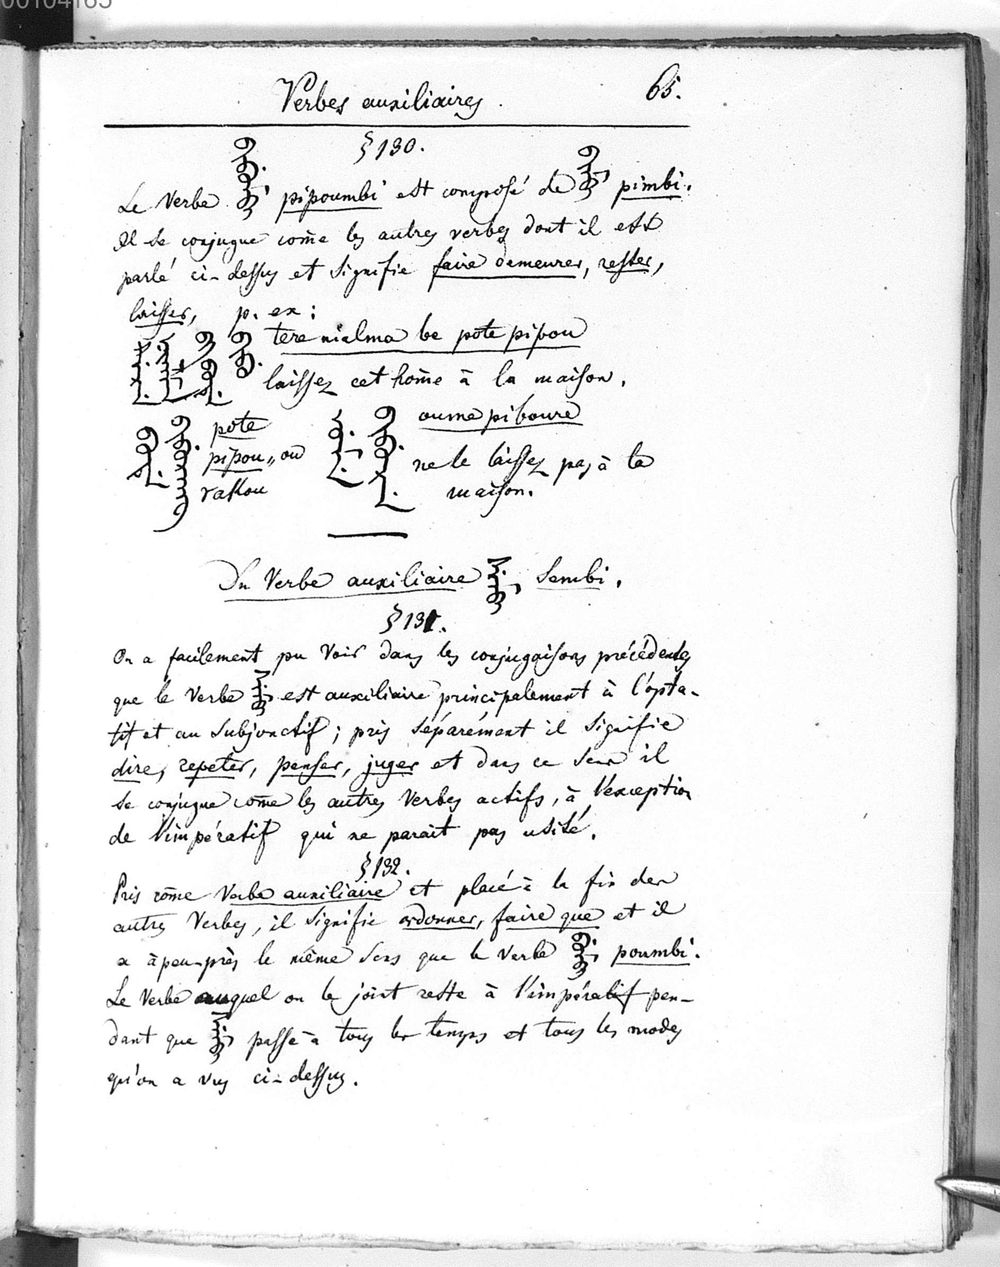 00104165
Verbes auxiliaires. 65.
§ 130.
Le Verbe ᠪᡳᠪᡠᠮᠪᡳ pipoumbi est composé de ᠪᡳᠮᠪᡳ pimbi.
Il se conjugue come les autres verbes dont il est
parlé ci-dessus et signifie faire demeurer, rester,
laisser, p. ex:
tere nialma be pote pipou
laissez cet home à la maison.
pote
pipou,, ou
oume piboure
ne le laissez pas à la
maison.
Du Verbe auxiliaire ᠰᡝᠮᠪᡳ Sembi.
§ 131.
On a facilement pu Voir dans les conjugaisons précédentes
que le Verbe ᠰᡝᠮᠪᡳ est auxiliaire principalement à l'opta-
tif et au Subjonctif; pris séparément il signifie
dire, repeter, penser, juger et dans ce sens il
se conjugue come les autres Verbes actifs, à l'exception
de l'impératif qui ne parait pas usité.
§ 132.
Pris come Verbe auxiliaire et placé à la fin des
autres Verbes, il signifie ordonner, faire que et il
a à peu-près le même sens que le Verbe ᠪᡠᠮᠪᡳ poumbi.
Le Verbe auquel on le joint reste à l'impératif pen-
dant que ᠰᡝᠮᠪᡳ passe à tous les temps et tous les modes
qu'on a vus ci-dessus.